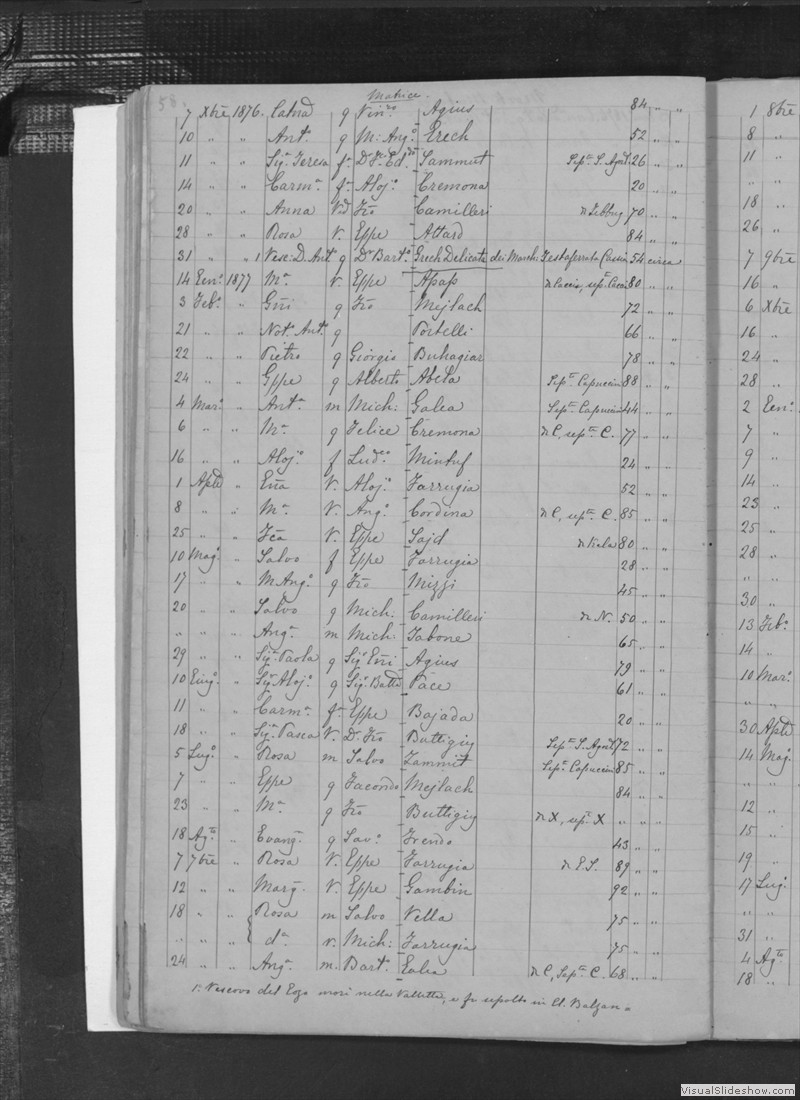 58. Matrice.
7 Xbre 1876. Catna g Vinro Agius 84 " "
10 " " Anta g M: Ango Grech 52 " "
11 " " Siga Teresa fa Dr Fr Eddo Sammut Sepa S. Agost. 26 " "
14 " " Carma fa Alojo Cremona 20 " "
20 " " Anna Vd Fco Camilleri n Zebbug 70 " "
28 " " Rosa V. Eppe Attard 84 " "
31 " " 1 Vesc: D. Ant g Dr Barto Grech Delicata dei March: Testaferrata Cassia 54 circa
14 Eno 1877 Ma v. Eppe Apap n Caccia, sepa Caccia 80 " "
3 Febo " Gni g Fco Mejlach 72 " "
21 " " Not. Anto g Portelli 66 " "
22 " " Pietro g Giorgio Buhagiar 78 " "
24 " " Gppe g Alberto Abela Sepa Capuccini 88 " "
4 Maro " Anta m Mich: Galea Sepa Capuccini 44 " "
6 " " Ma g Felice Cremona n C, sepa C. 77 " "
16 " " Alojo f Ludco Mintuf 24 " "
1 Aple " Ena V. Alojo Farrugia 52 " "
8 " " Ma V. Ango Cordina n C, sepa C. 85 " "
25 " " Fca V. Eppe Sajd n Kala 80 " "
10 Mago " Salvo f Eppe Farrugia 28 " "
17 " " M Ango g Fco Mizzi 45 " "
20 " " Salvo g Mich: Camilleri n N. 50 " "
" " " Anga m Mich: Tabone 65 " "
29 " " Siga Paola g Sigr Eni Agius 79 " "
10 Eiugo " Sigr Alojo g Sigr Batta Pace 61 " "
11 " " Carma fa Eppe Bajada 20 " "
18 " " Siga Pasca V. Dr Fco Buttigieg Sepa S. Agost. 72 " "
5 Lugo " Rosa m Salvo Zammit Sepa Capuccini 85 " "
7 " " Eppe g Facondo Mejlach 84 " "
23 " " Ma g Fco Buttigieg n X, sepa X " " "
18 Agto " Evanga g Savo Frendo 43 " "
7 7bre " Rosa V. Eppe Farrugia n E.S. 89 " "
12 " " Marga V. Eppe Gambin 92 " "
18 " " Rosa m Salvo Vella 75 " "
" " " da v. Mich: Farrugia 75 " "
24 " " Anga m. Barto Galea n C, Sepa C. 68 " "
1: Vescovo del Gozo morì nella Valletta, e fu sepolto in C. Balzan.
1 8bre
8 "
11 "
" "
18 "
26 "
7 9bre
16 "
6 Xbre
16 "
24 "
28 "
2 Eeno
7 "
9 "
14 "
23 "
25 "
28 "
" "
30 "
13 Febo
14 "
10 Maro
" "
30 Aple
14 Mago
" "
12 "
15 "
19 "
17 Lugo
" "
31 "
4 Agto
18 "
VisualSlideshow.com